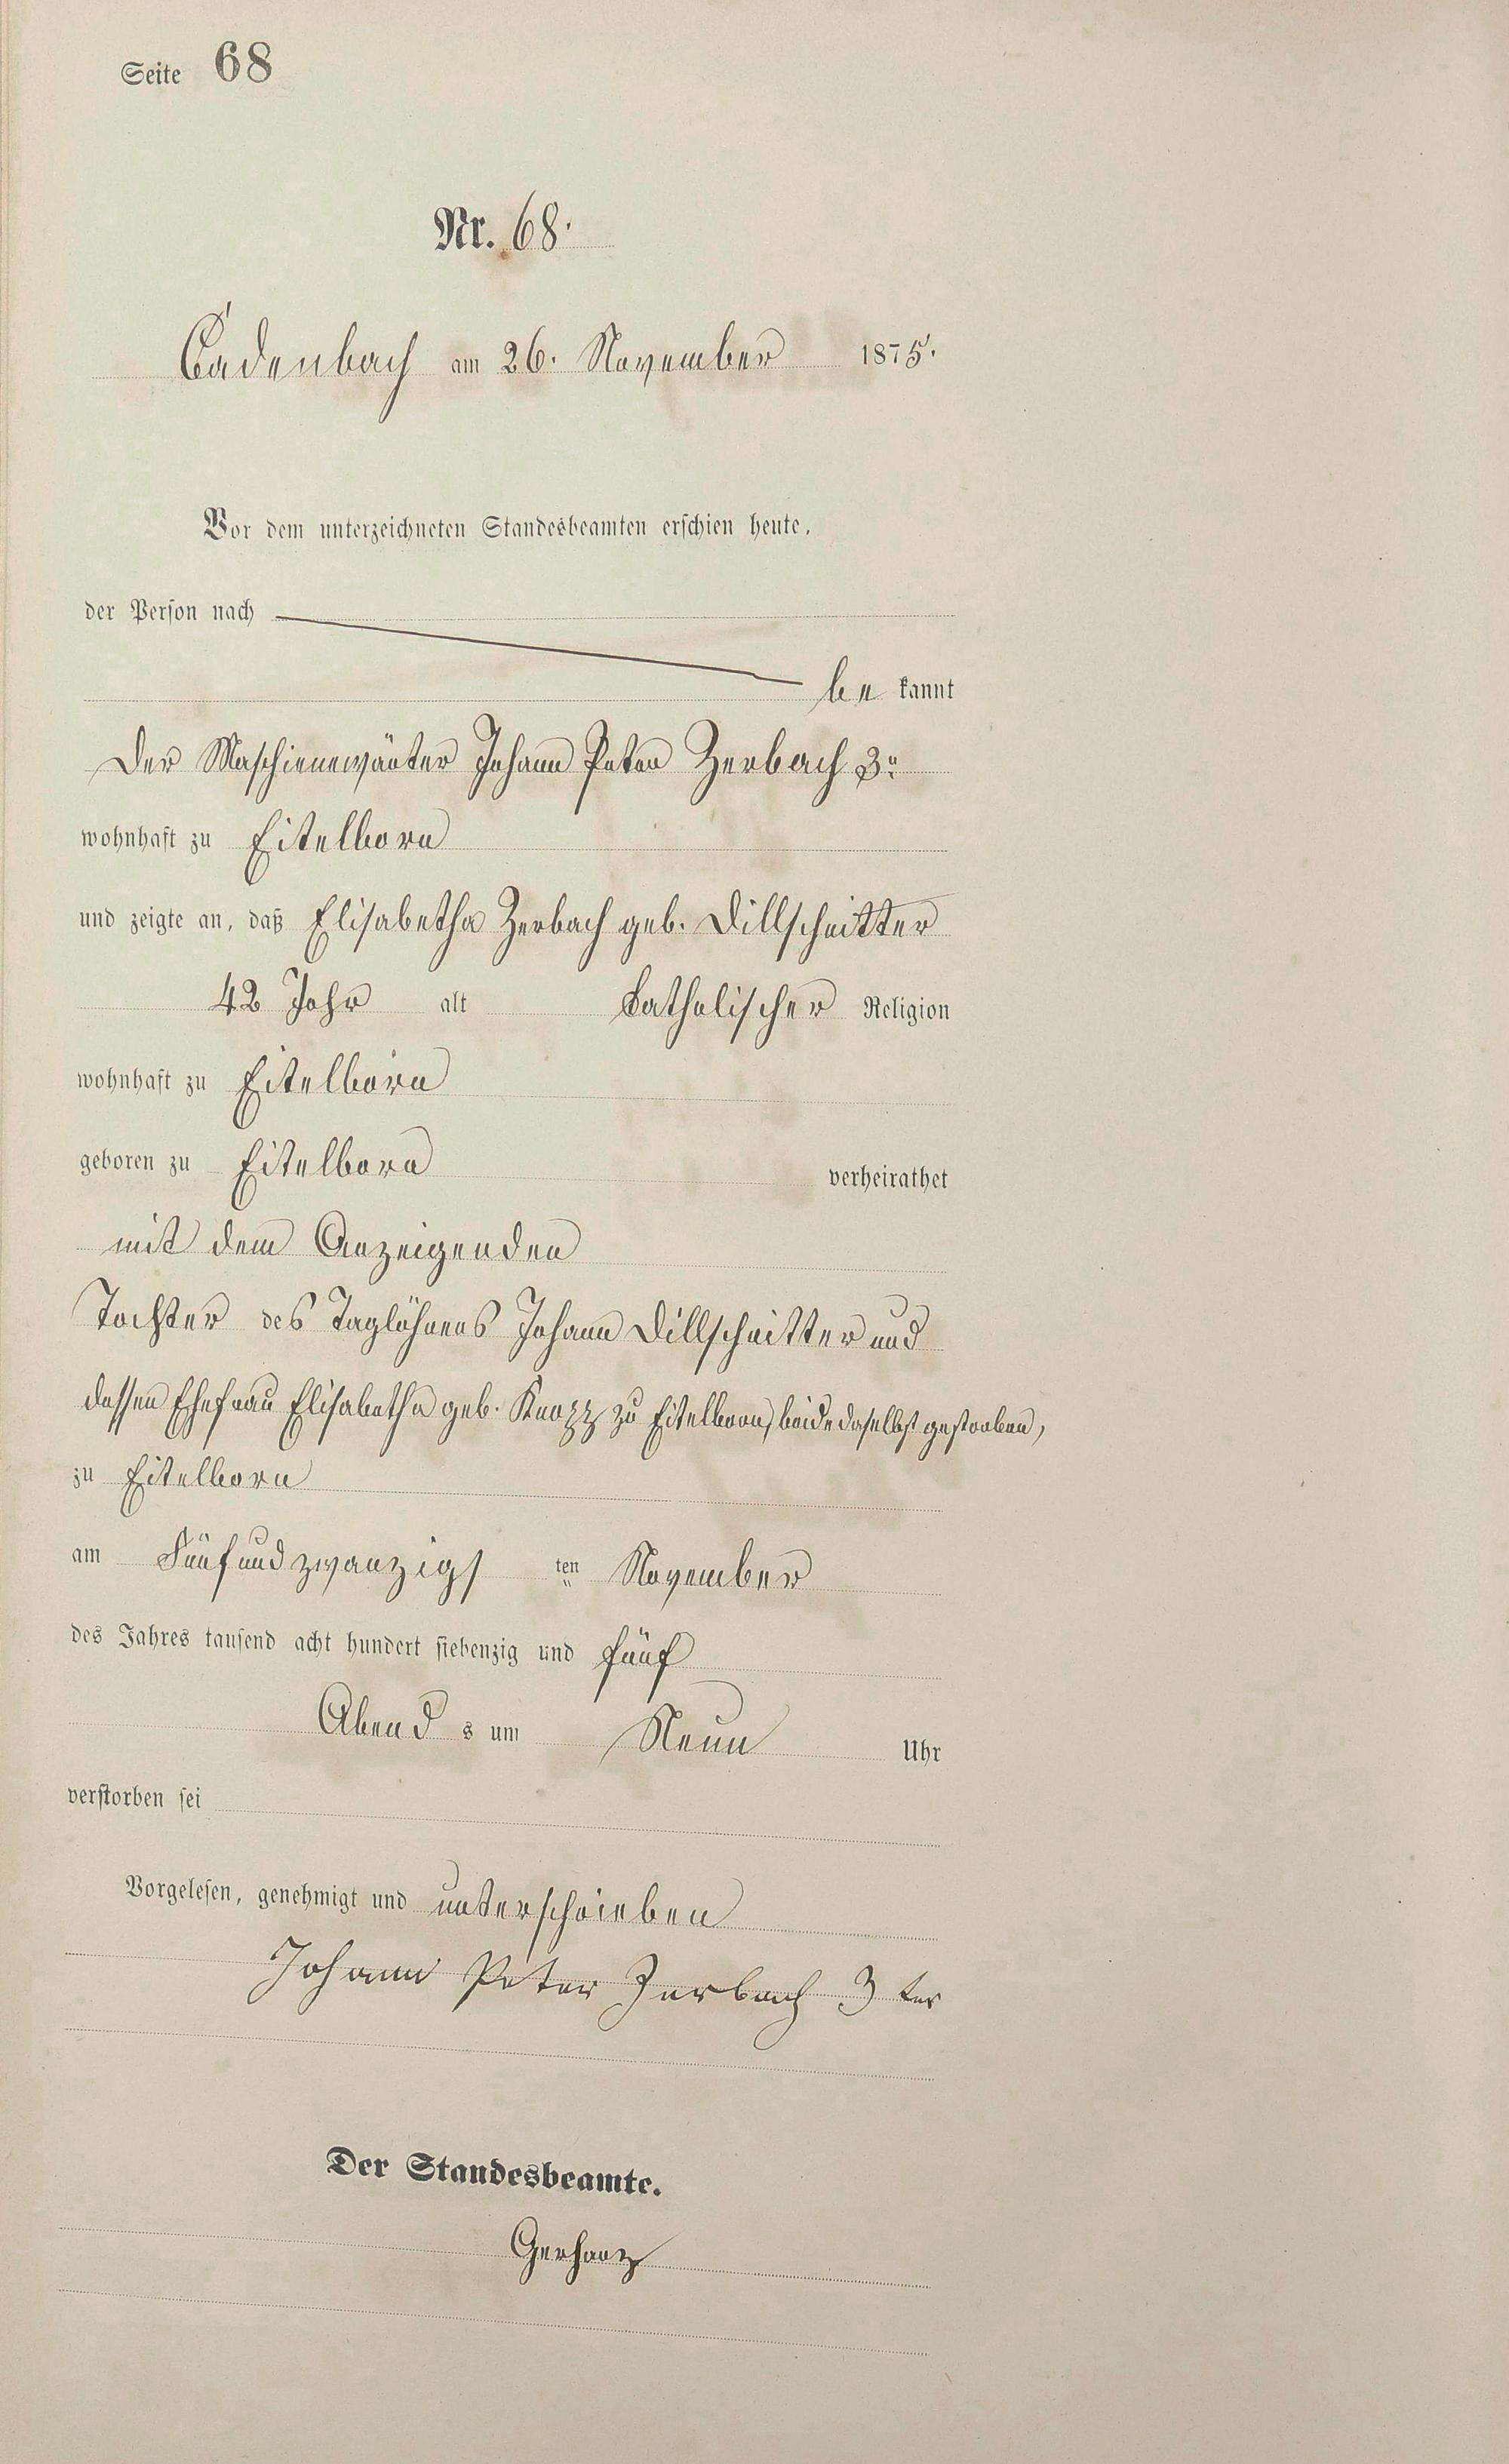 Seite 68
Nr. 68.
Cadenbach am 26. November 1875.
Vor dem unterzeichneten Standesbeamten erschien heute,
der Person nach
be kannt
der Maschienewärter Johann Peter Zerbach 3r
wohnhaft zu Eitelborn
und zeigte an, daß Elisabetha Zerbach geb. Dillschnitter
42 Jahr alt katholischer Religion
wohnhaft zu Eitelborn
geboren zu Eitelborn verheirathet
mit dem Anzeigenden
Tochter des Taglöhners Johann Dillschnitter und
dessen Ehefrau Elisabetha geb. Knopp zu Eitelborn, beide daselbst gestorben,
zu Eitelborn
am Fünfundzwanzigs ten November
des Jahres tausend acht hundert siebenzig und fünf
Abend s um Neun Uhr
verstorben sei
Vorgelesen, genehmigt und unterschrieben
Johann Peter Zerbach 3 ter
Der Standesbeamte.
Gerharz